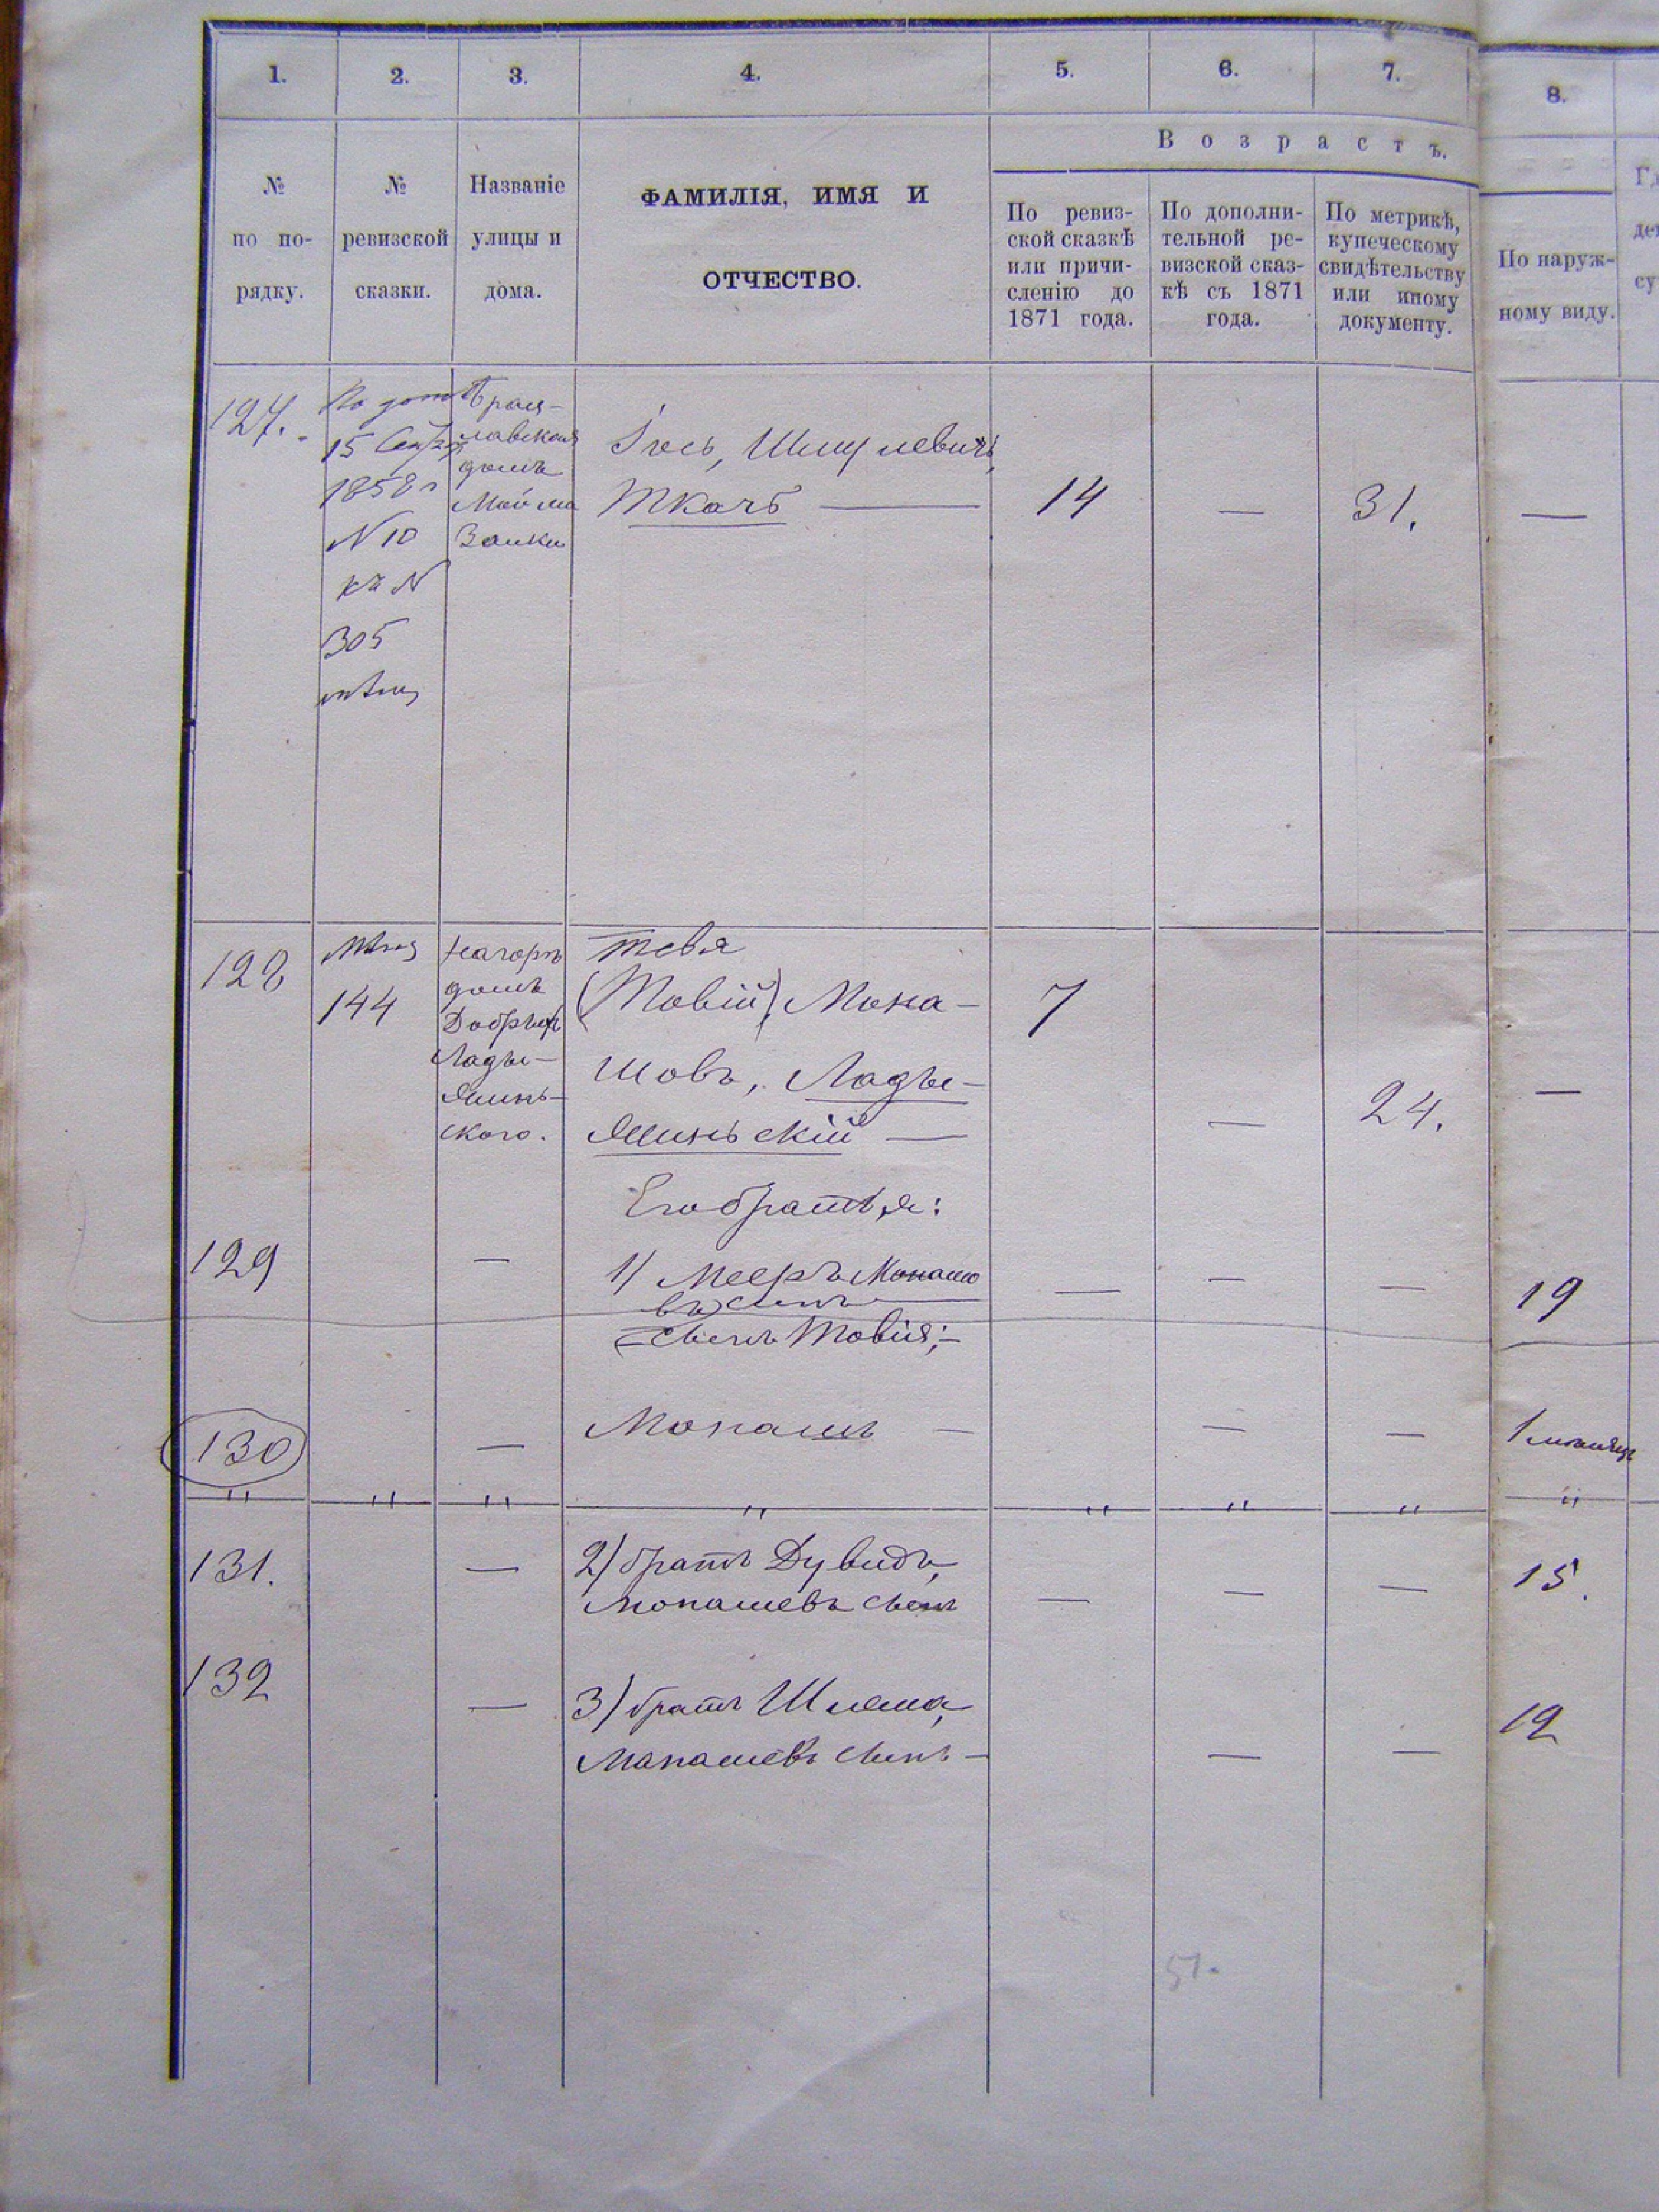 1.
2.
3.
4.
5.
6.
7.
8.
№
по по-
рядку.
№
ревизской
сказки.
Названіе
улицы и
дома.
ФАМИЛІЯ, ИМЯ И
ОТЧЕСТВО.
Возрастъ.
По ревиз-
ской сказкѣ
или причи-
сленію до
1871 года.
По дополни-
тельной ре-
визской сказ-
кѣ съ 1871
года.
По метрикѣ,
купеческому
свидѣтельству
или иному
документу.
По наруж-
ному виду.
127.
15
1858 г
N 10
къ N
305
лавская
домъ
Іось, Шмулевичъ,
Ткачъ —
14
—
31.
—
128
144
домъ
Лады-
жинь-
ского.
Тевя
(Товій) Мона-
шовъ, Лады-
жиньскій —
7
—
24.
—
Его братья:
129
—
1) Мееръ Монашо
въ сынъ
Сынъ Товія; —
—
—
—
19
130
—
Монашъ —
—
—
1 мѣсяцъ
" " " " " " " "
131.
—
2) братъ Дувидъ,
Монашевъ сынъ
—
—
—
15.
132
—
3) братъ Шлема,
Манашевъ сынъ —
—
—
12
51.